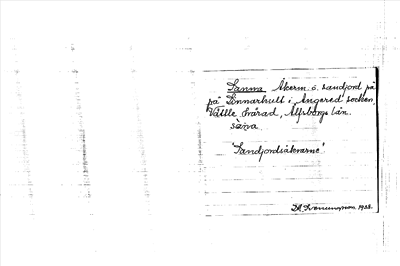 Sanna Åkerm. o. sandjord på
på Linnarhult i Angered socken,
Vättle härad, Älfsborgs län.
säna
"Sandjordsåkrarne".
1928.